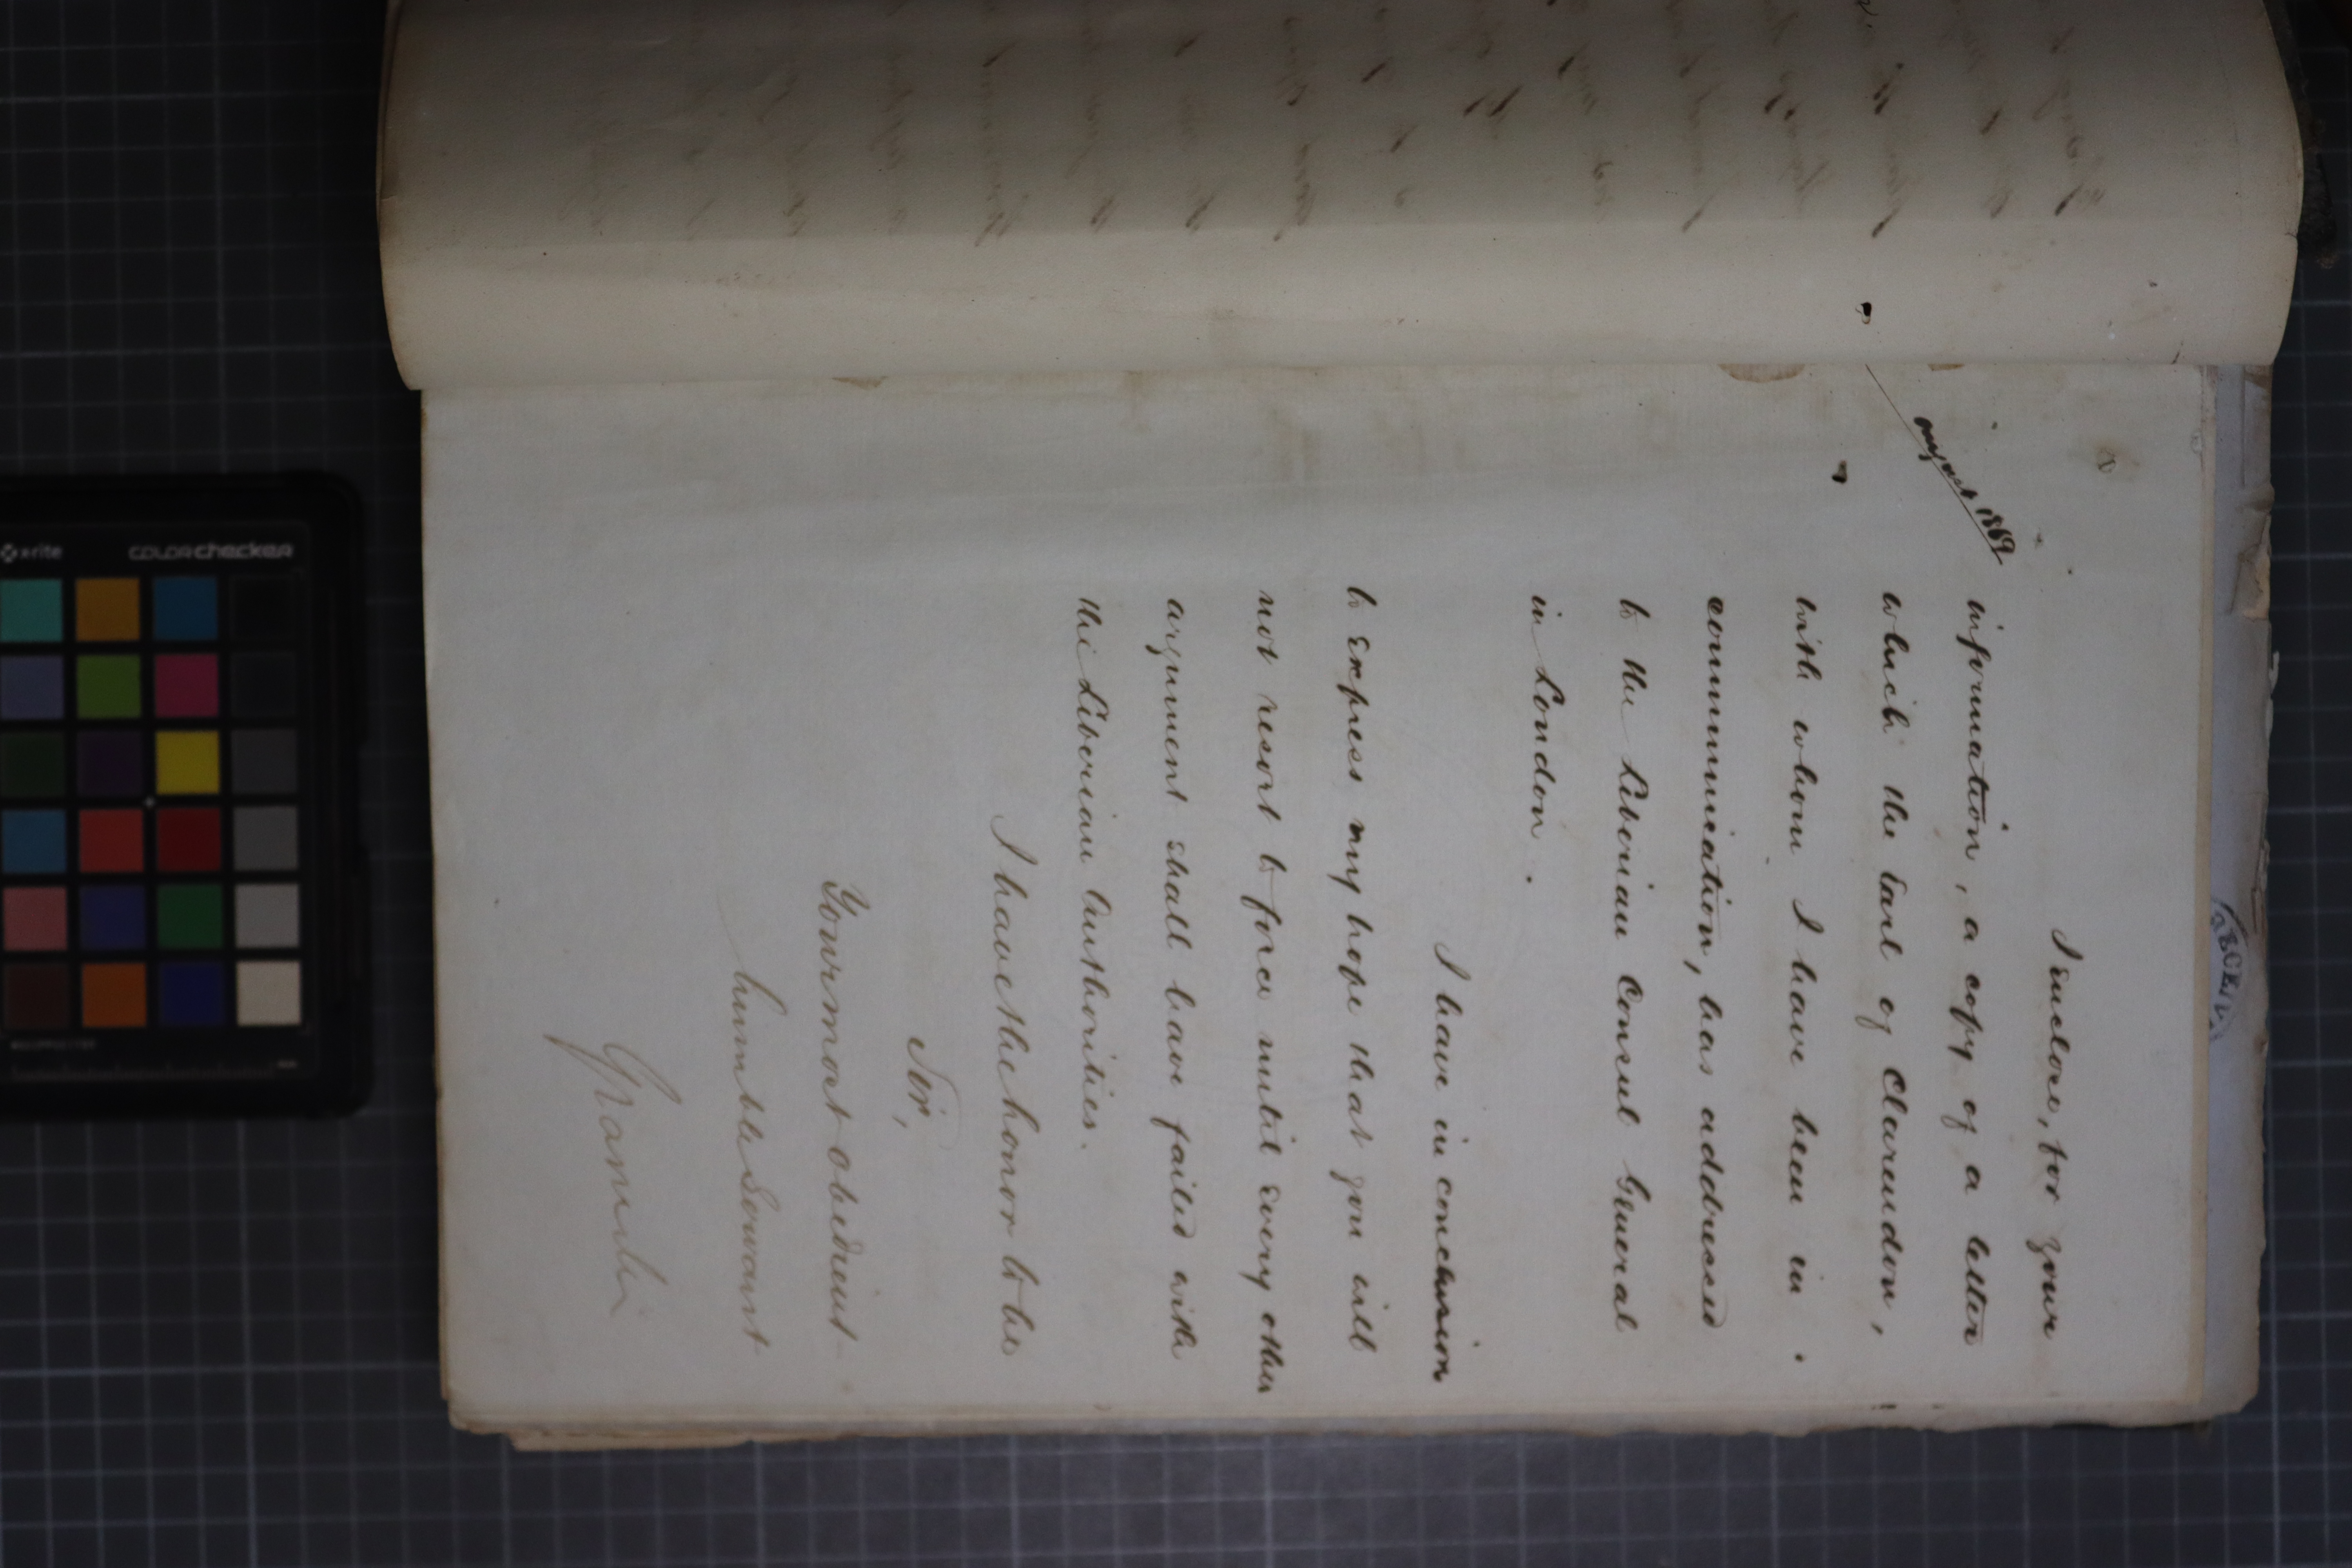 I enclose, for your
August 1869
information, a copy of a letter
which the Earl of Clarendon,
with whom I have been in
communication, has addressed
to the Liberian Consul General
in London.
I have in conclusion
to express my hope that you will
not resort to force until every other
argument shall have failed with
the Liberian Authorities.
I have the honor to be
Sir,
Your most obedient
humble Servant
Granville
x-rite
colorchecker